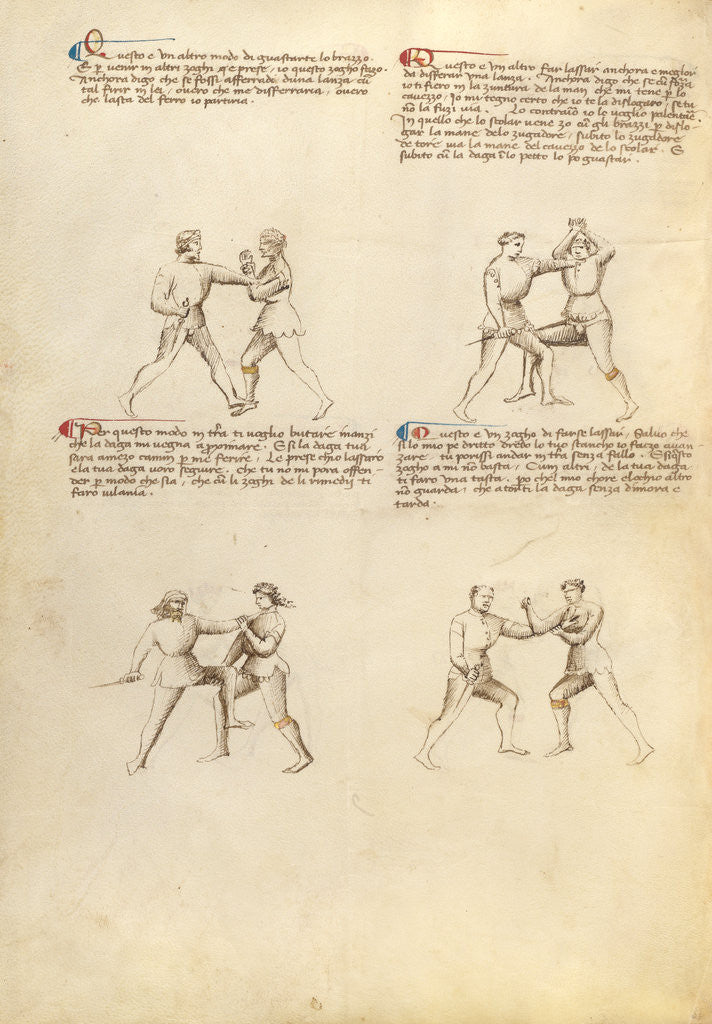 Questo e un altro modo di guastarte lo brazzo.
E p venir in altri zoghi e prese, io questo zogho fazo.
Anchora digo che se fossi afferrado duna lanza cu
tal firir in lei, overo che me disferraria, overo
che lasta del ferro io partiria.
Questo e un altro far lassar anchora e meglor
da disferar una lanza. Anchora digo che se cu forza
io ti fiero in la zuntura de la man che mi tene p lo
cavezzo, io mi tegno certo che io te la dislogaro, se tu
no la fuzi via. Lo contrario io lo voglio palentar.
In quello che lo scolar vene zo cu gli brazzi p dislo-
gar la mane delo zugadore, subito lo zugadore
de tore via la mane del cavezzo de lo scolar. E
subito cu la daga i lo petto lo po guastar.
Per questo modo in tra ti voglio butare inanzi
che la daga mi vegna aproximare. E si la daga tua
sara amezo camin p me ferire, Le prese chio lassaro
e la tua daga voro seguire. che tu no mi pora offen-
der p modo che sia, che cu li zoghi de li rimedii ti
faro vilania.
Questo e un zogho di farse lassar, Salvo che
si lo mio pe dritto dredo lo tuo stancho io fazo avan-
zare. tu porissi andar in tra senza fallo. E si questo
zogho a mi no basta, Cum altri, de la tua daga
ti faro una tasta. po chel mio chore e lochio altro
no guarda, che a torti la daga senza dimora e
tarda.